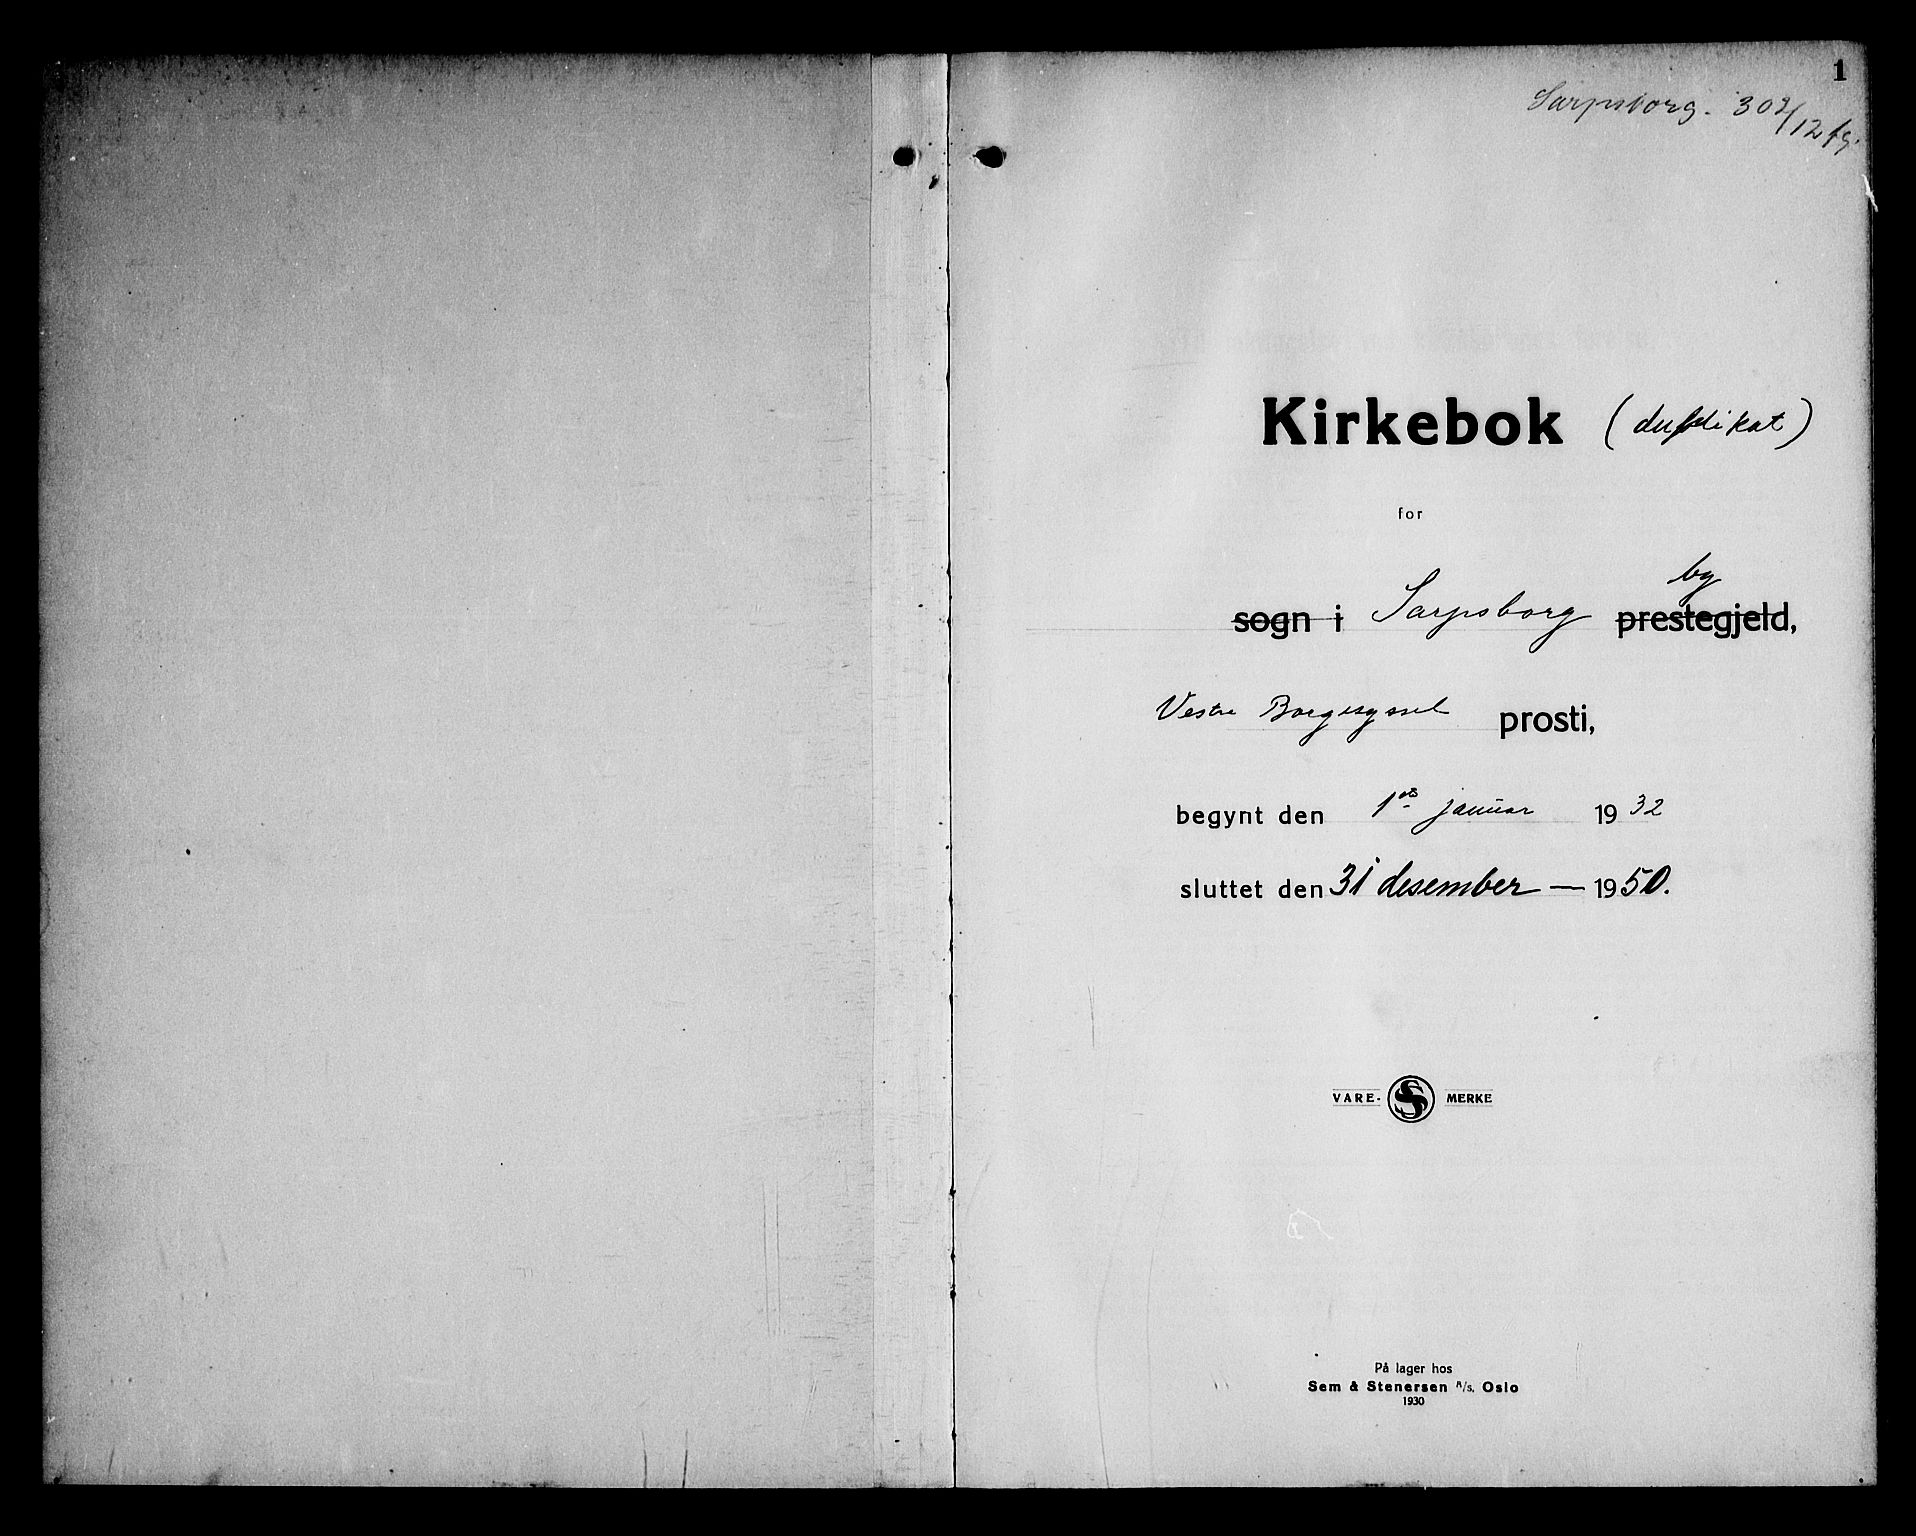 1
Sarpsborg. 302/12 fg.
Kirkebok (duplikat)
for
by
sogn i Sarpsborg prestegjeld,
Vestre Borgesyssel prosti,
begynt den 1ste januar 1932
sluttet den 31 desember — 1950.
VARE- S MERKE
På lager hos
Sem & Stenersen A/s. Oslo
1930